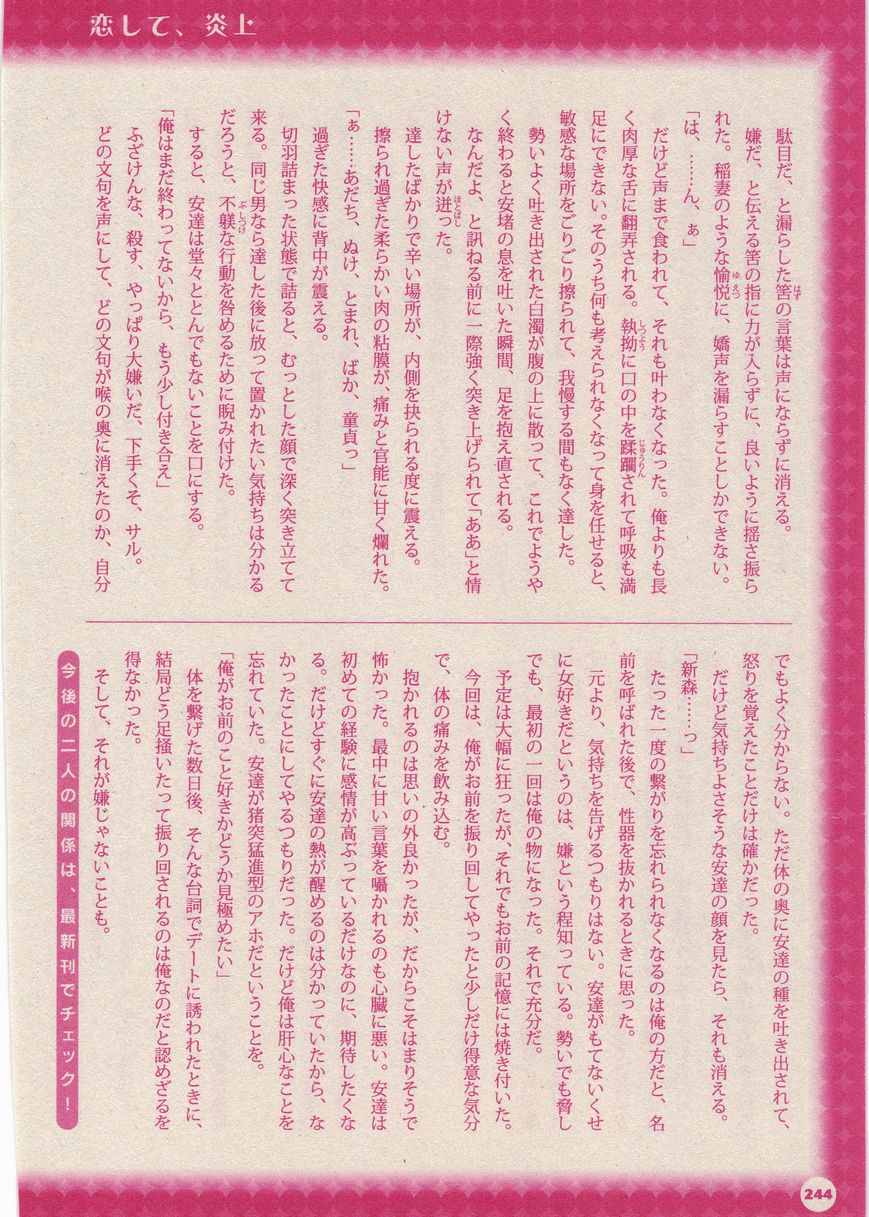 恋して、炎上
駄目だ、と漏らした筈の言葉は声にならずに消える。
嫌だ、と伝える筈の指に力が入らずに、良いように揺さ振ら
れた。稲妻のような愉悦に、嬌声を漏らすことしかできない。
「は、……ん、ぁ」
だけど声まで食われて、それも叶わなくなった。俺よりも長
く肉厚な舌に翻弄される。執拗に口の中を蹂躙されて呼吸も満
足にできない。そのうち何も考えられなくなって身を任せると、
敏感な場所をごりごり擦られて、我慢する間もなく達した。
勢いよく吐き出された白濁が腹の上に散って、これでようや
く終わると安堵の息を吐いた瞬間、足を抱え直される。
なんだよ、と訊ねる前に一際強く突き上げられて「ああ」と情
けない声が迸った。
達したばかりで辛い場所が、内側を抉られる度に震える。
擦られ過ぎた柔らかい肉の粘膜が、痛みと官能に甘く爛れた。
「ぁ……あだち、ぬけ、とまれ、ばか、童貞っ」
過ぎた快感に背中が震える。
切羽詰まった状態で詰ると、むっとした顔で深く突き立てて
来る。同じ男なら達した後に放って置かれたい気持ちは分かる
だろうと、不躾な行動を咎めるために睨み付けた。
すると、安達は堂々ととんでもないことを口にする。
「俺はまだ終わってないから、もう少し付き合え」
ふざけんな、殺す、やっぱり大嫌いだ、下手くそ、サル。
どの文句を声にして、どの文句が喉の奥に消えたのか、自分
でもよく分からない。ただ体の奥に安達の種を吐き出されて、
怒りを覚えたことだけは確かだった。
だけど気持ちよさそうな安達の顔を見たら、それも消える。
「新森……っ」
たった一度の繋がりを忘れられなくなるのは俺の方だと、名
前を呼ばれた後で、性器を抜かれるときに思った。
元より、気持ちを告げるつもりはない。安達がもてないくせ
に女好きだというのは、嫌という程知っている。勢いでも脅し
でも、最初の一回は俺の物になった。それで充分だ。
予定は大幅に狂ったが、それでもお前の記憶には焼き付いた。
今回は、俺がお前を振り回してやったと少しだけ得意な気分
で、体の痛みを飲み込む。
抱かれるのは思いの外良かったが、だからこそはまりそうで
怖かった。最中に甘い言葉を囁かれるのも心臓に悪い。安達は
初めての経験に感情が高ぶっているだけなのに、期待したくな
る。だけどすぐに安達の熱が醒めるのは分かっていたから、な
かったことにしてやるつもりだった。だけど俺は肝心なことを
忘れていた。安達が猪突猛進型のアホだということを。
「俺がお前のこと好きかどうか見極めたい」
体を繋げた数日後、そんな台詞でデートに誘われたときに、
結局どう足掻いたって振り回されるのは俺なのだと認めざるを
得なかった。
そして、それが嫌じゃないことも。
今後の二人の関係は、最新刊でチェック!
244